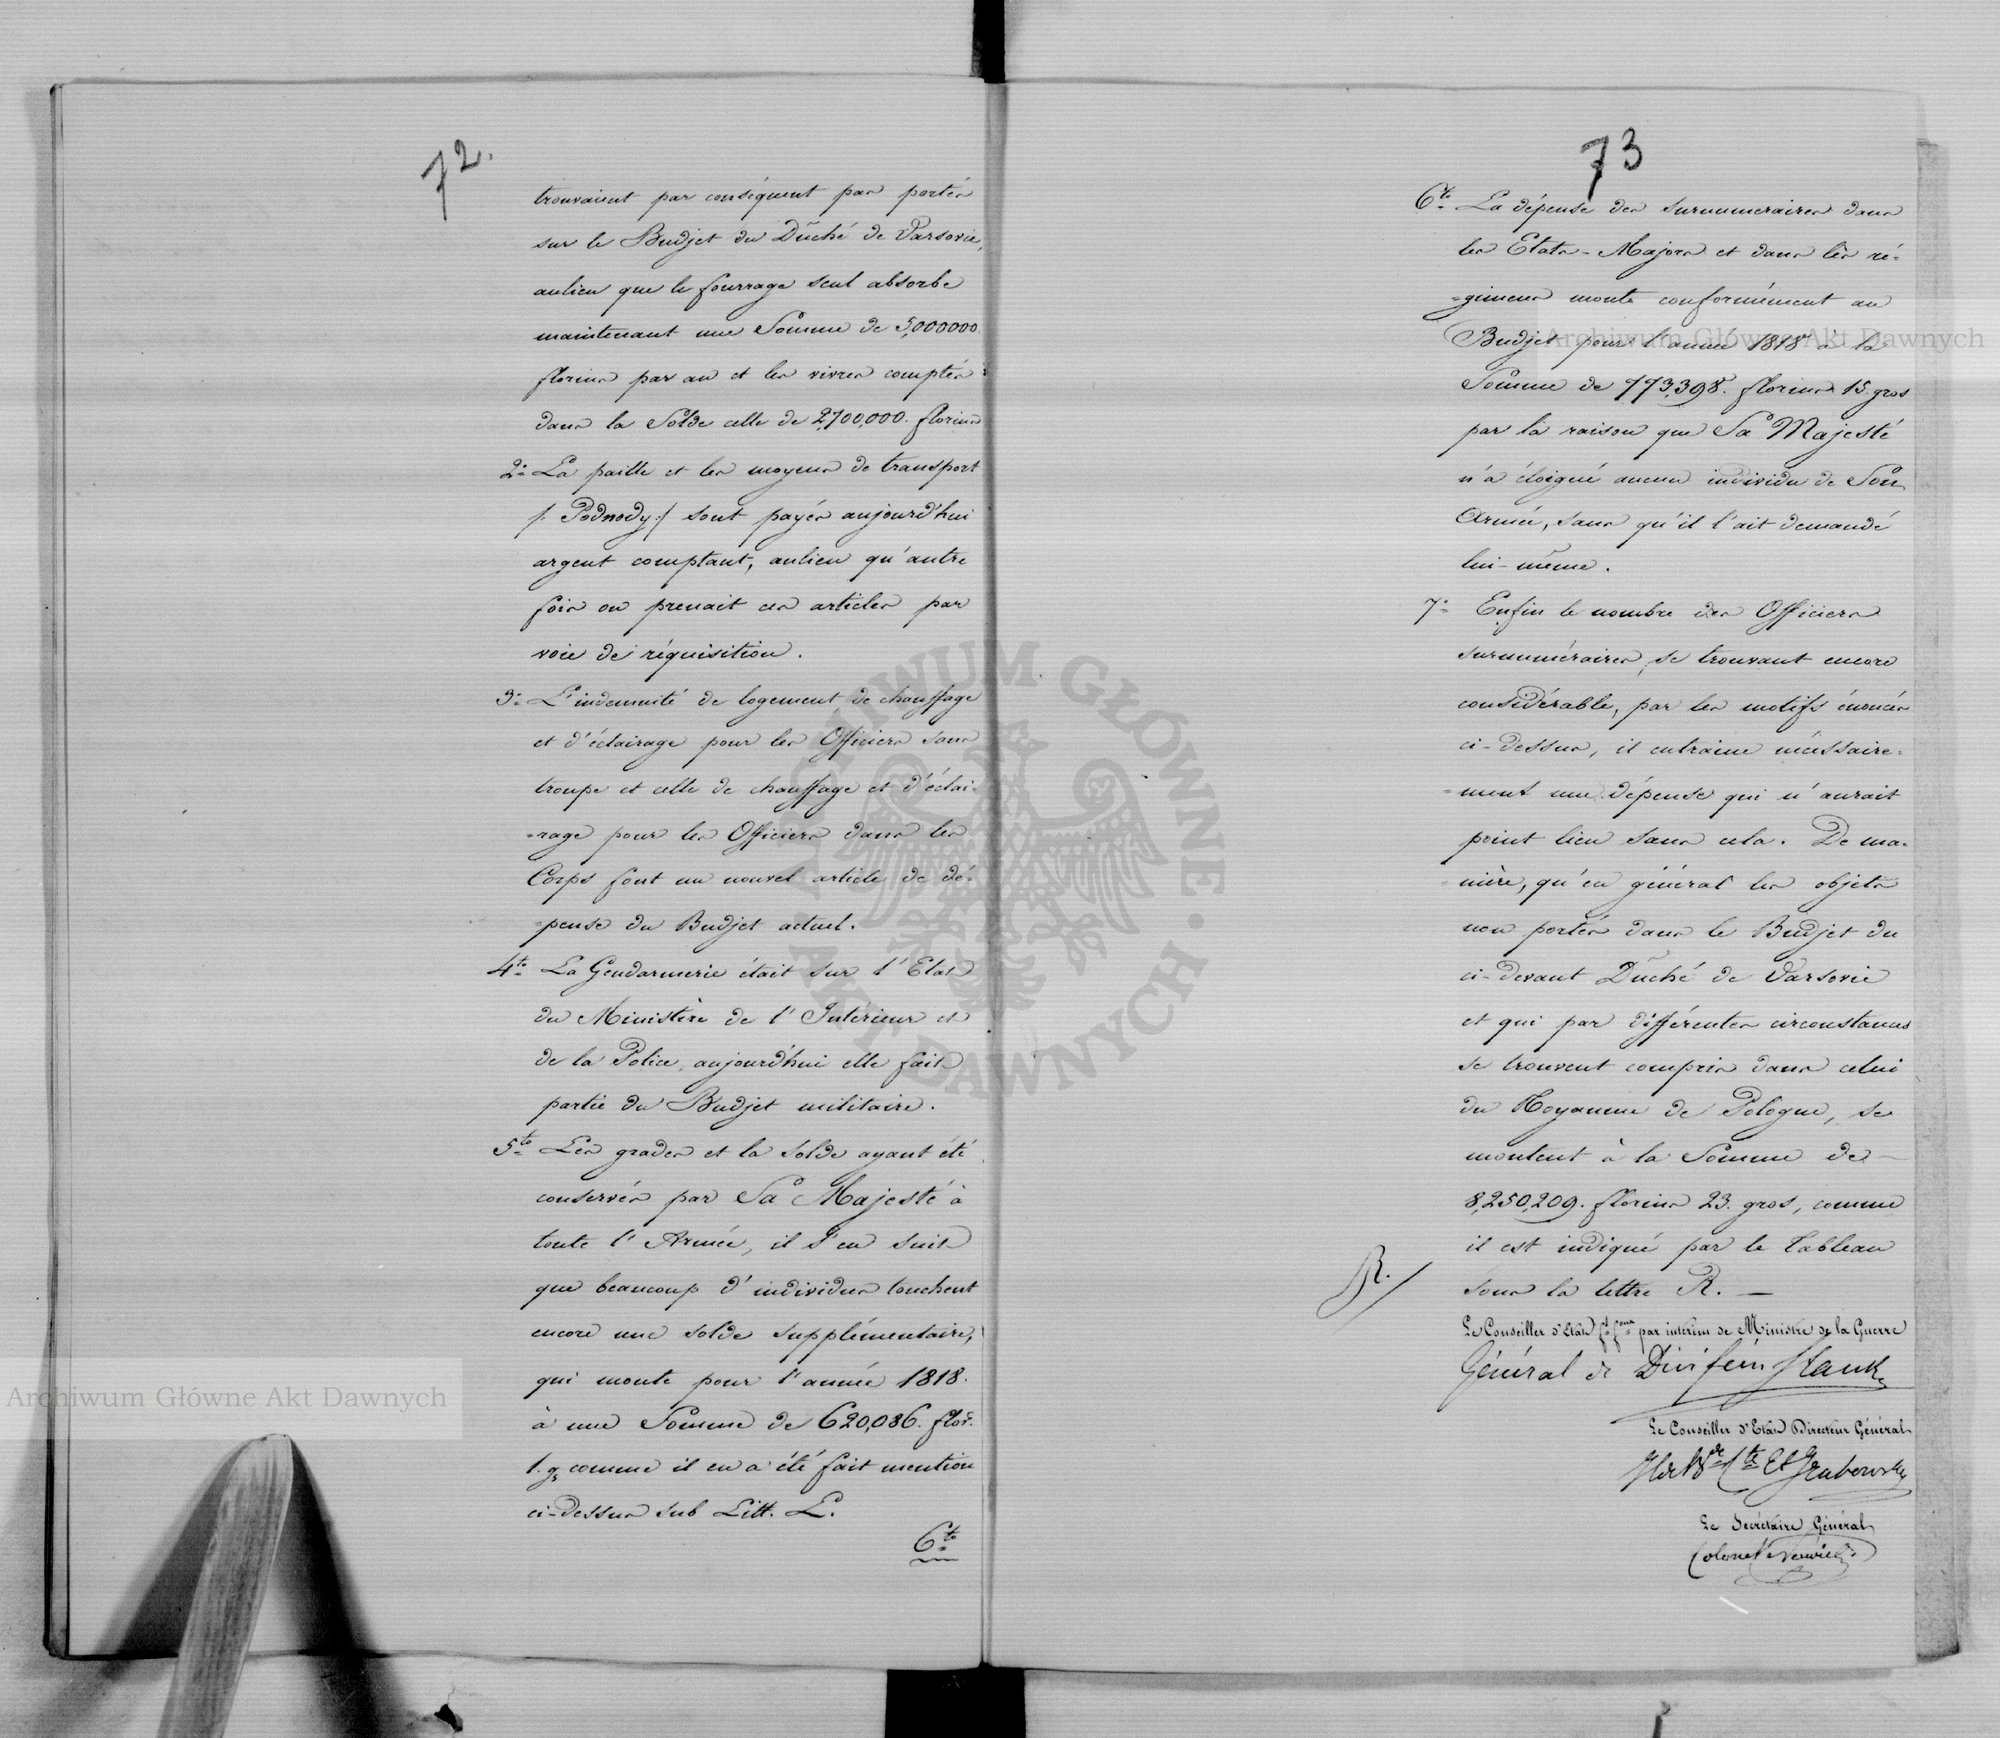 72.
trouvaient par conséquent pas portés
sur le Budjet du Duché de Varsovie,
aulieu que le fourrage seul absorbe
maintenant une Somme de 5,000000
florins par an et les vivres comptés
dans la Solde celle de 2,700,000. florins
2º La paille et les moyens de transport
/: Podwody :/ sont payés aujourd'hui
argent comptant, aulieu qu'autre
fois on prenait ces articles par
voie de réquisition.
3º L'indemnité de logement de chauffage
et d'éclairage pour les Officiers sans
troupe et celle de chauffage et d'éclai=
=rage pour les Officiers dans les
Corps font un nouvel article de dé=
=pense du Budjet actuel.
4to La Gendarmerie était sur l'Etat
du Ministère de l'Intérieur et
de la Police, aujourd'hui elle fait
partie du Budjet militaire.
5to Les grades et la solde ayant été
conservés par Sa Majesté à
toute l'Armée, il s'en suit
que beaucoup d'individus touchent
encore une solde supplémentaire,
qui monte pour l'année 1818.
à une Somme de 620,086. flor.
1. gs comme il en a été fait mention
ci-dessus sub Litt. L.
6to
73
6to La dépense des surnumeraires dans
les Etats-Majors et dans les ré=
=gimens monte conformément au
Budjet pour l'année 1818 à la
Somme de 773,398. florins 15. gros
par la raison que Sa Majesté
n'a éloigné aucun individu de Son
Armée, sans qu'il l'ait demandé
lui-même.
7º Enfin le nombre des Officiers
surnuméraires, se trouvant encore
considérable, par les motifs énoncés
ci-dessus, il entraine nécessaire=
=ment une dépense qui n'aurait
point lieu sans cela. De ma=
=nière, qu'en général les objets
non portés dans le Budjet du
ci-devant Duché de Varsovie
et qui par différentes circonstances
se trouvent compris dans celui
du Royaume de Pologne, se
montent à la Somme de —
8,250,209. florins 23. gros, comme
il est indiqué par le Tableau
sous la lettre R. —
R.
Le Conseiller d'Etat ft fons par intérim de Ministre de la Guerre
Général de Division Hauke
Le Conseiller d'Etat Directeur Général
Cte Et Grabowski
Le Secrétaire Général
Colonel
Archiwum Główne Akt Dawnych
Archiwum Główne Akt Dawnych
ARCHIWUM GŁÓWNE AKT DAWNYCH